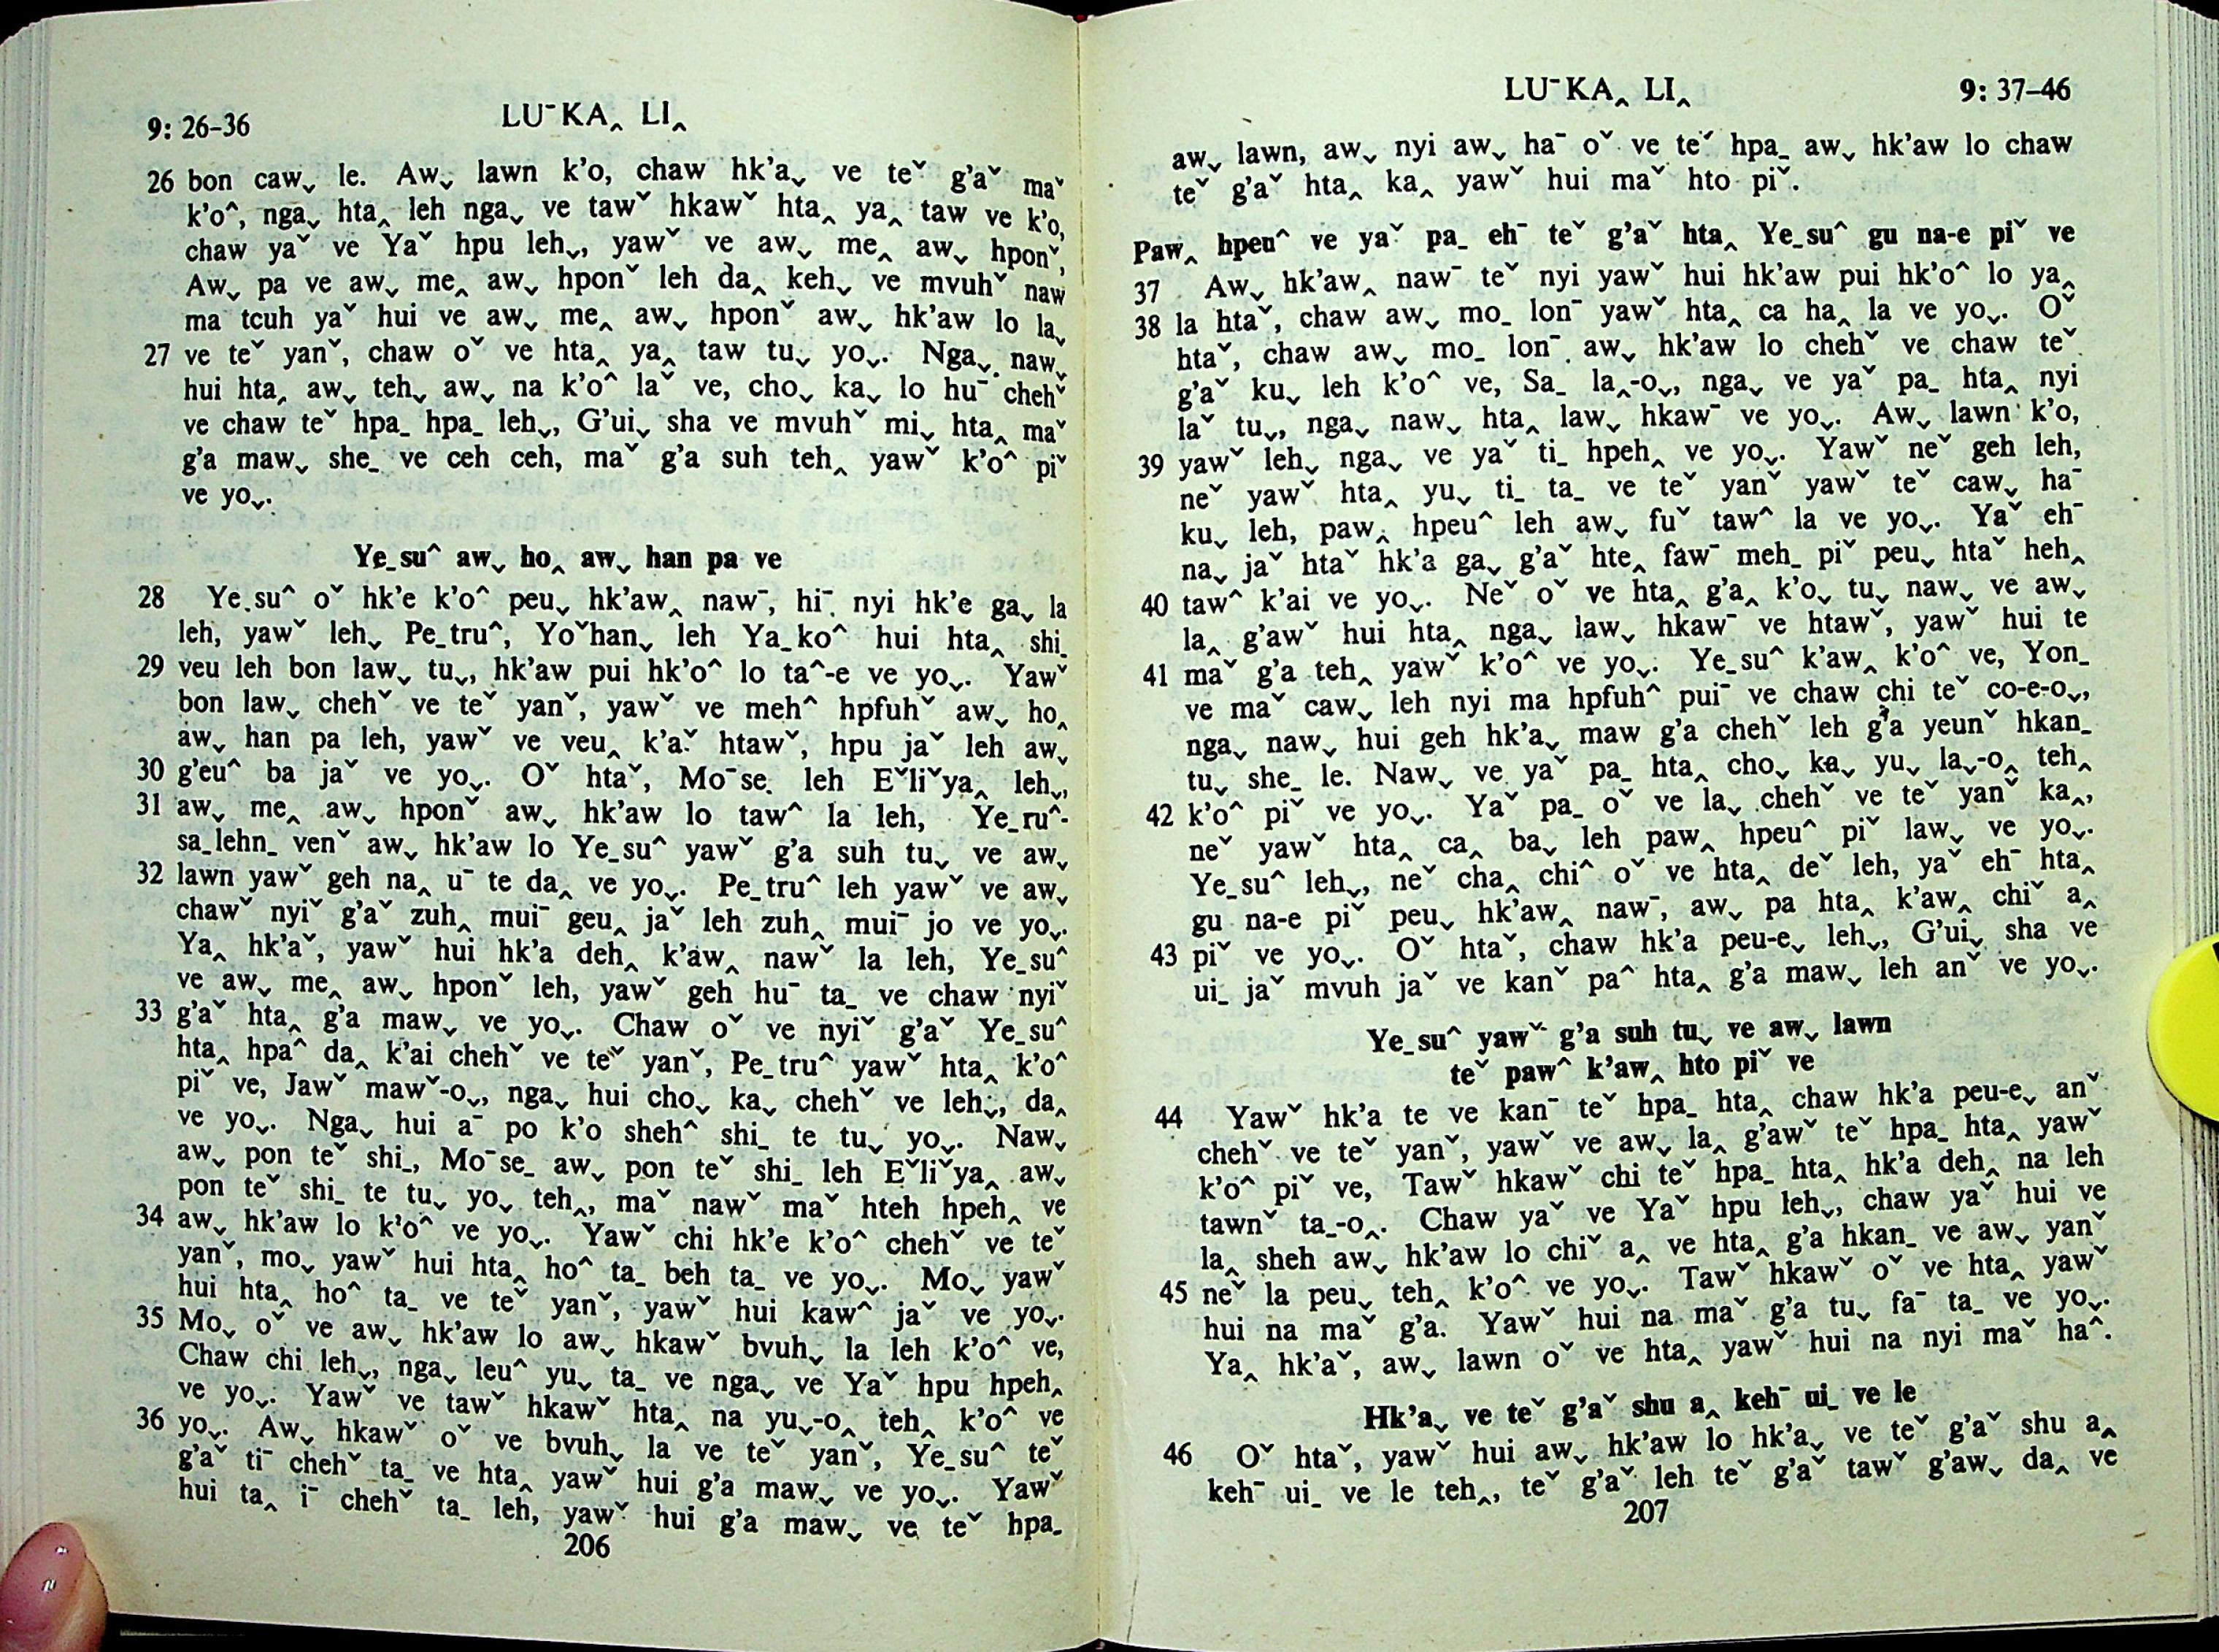 9: 26–36
LUˉKA‸ LI‸
26 bon caw˯ le. Aw˯ lawn k'o, chaw hk'a˯ ve teˇ g'aˇ maˇ
k'o^, nga˯ hta‸ leh nga˯ ve tawˇ hkawˇ hta‸ ya‸ taw ve k'o,
chaw yaˇ ve Yaˇ hpu leh˯, yawˇ ve aw˯ me‸ aw˯ hponˇ,
Aw˯ pa ve aw˯ me‸ aw˯ hponˇ leh da‸ keh˯ ve mvuhˇ naw
ma tcuh yaˇ hui ve aw˯ me‸ aw˯ hponˇ aw˯ hk'aw lo la˯
27 ve teˇ yanˇ, chaw oˇ ve hta‸ ya‸ taw tu˯ yo˯. Nga˯ naw˯
hui hta‸ aw˯ teh˯ aw˯ na k'o^ laˇ ve, cho˯ ka˯ lo huˉ chehˇ
ve chaw teˇ hpaˍ hpaˍ leh˯, G'ui˯ sha ve mvuhˇ mi˯ hta‸ maˇ
g'a maw˯ sheˍ ve ceh ceh, maˇ g'a suh teh‸ yawˇ k'o^ piˇ
ve yo˯.
Yeˍsu^ aw˯ ho‸ aw˯ han pa ve
28 Yeˍsu^ oˇ hk'e k'o^ peu˯ hk'aw‸ nawˉ, hiˉ nyi hk'e ga˯ la
leh, yawˇ leh˯ Peˍtru^, Yoˇhan˯ leh Yaˍko^ hui hta‸ shiˍ
29 veu leh bon law˯ tu˯, hk'aw pui hk'o^ lo ta^-e ve yo˯. Yawˇ
bon law˯ chehˇ ve teˇ yanˇ, yawˇ ve meh^ hpfuhˇ aw˯ ho‸
aw˯ han pa leh, yawˇ ve veu‸ k'aˇ htawˇ, hpu jaˇ leh aw˯
30 g'eu^ ba jaˇ ve yo˯. Oˇ htaˇ, Moˉseˍ leh Eˇliˇya‸ leh˯,
31 aw˯ me‸ aw˯ hponˇ aw˯ hk'aw lo taw^ la leh, Yeˍru^-
saˍlehnˍ venˇ aw˯ hk'aw lo Yeˍsu^ yawˇ g'a suh tu˯ ve aw˯
32 lawn yawˇ geh na‸ uˉ te da‸ ve yo˯. Peˍtru^ leh yawˇ ve aw˯
chawˇ nyiˇ g'aˇ zuh‸ muiˉ geu‸ jaˇ leh zuh‸ muiˉ jo ve yo˯.
Ya‸ hk'aˇ, yawˇ hui hk'a deh‸ k'aw‸ nawˇ la leh, Yeˍsu^
ve aw˯ me‸ aw˯ hponˇ leh, yawˇ geh huˉ taˍ ve chaw nyiˇ
33 g'aˇ hta‸ g'a maw˯ ve yo˯. Chaw oˇ ve nyiˇ g'aˇ Yeˍsu^
hta‸ hpa^ da‸ k'ai chehˇ ve teˇ yanˇ, Peˍtru^ yawˇ hta‸ k'o^
piˇ ve, Jawˇ mawˇ-o˯, nga˯ hui cho˯ ka˯ chehˇ ve leh˯, da‸
ve yo˯. Nga˯ hui aˉ po k'o sheh^ shiˍ te tu˯ yo˯. Naw˯
aw˯ pon teˇ shiˍ, Moˉseˍ aw˯ pon teˇ shiˍ leh Eˇliˇya‸ aw˯
pon teˇ shiˍ te tu˯ yo˯ teh‸, maˇ nawˇ maˇ hteh hpeh‸ ve
34 aw˯ hk'aw lo k'o^ ve yo˯. Yawˇ chi hk'e k'o^ chehˇ ve teˇ
yanˇ, mo˯ yawˇ hui hta‸ ho^ taˍ beh taˍ ve yo˯. Mo˯ yawˇ
hui hta‸ ho^ taˍ ve teˇ yanˇ, yawˇ hui kaw^ jaˇ ve yo˯.
35 Mo˯ oˇ ve aw˯ hk'aw lo aw˯ hkawˇ bvuh˯ la leh k'o^ ve,
Chaw chi leh˯, nga˯ leu^ yu˯ taˍ ve nga˯ ve Yaˇ hpu hpeh‸
ve yo˯. Yawˇ ve tawˇ hkawˇ hta‸ na yu˯-o‸ teh‸ k'o^ ve
36 yo˯. Aw˯ hkawˇ oˇ ve bvuh˯ la ve teˇ yanˇ, Yeˍsu^ teˇ
g'aˇ tiˉ chehˇ taˍ ve hta‸ yawˇ hui g'a maw˯ ve yo˯. Yawˇ
hui ta‸ iˉ chehˇ taˍ leh, yawˇ hui g'a maw˯ ve teˇ hpaˍ
206
LUˉKA‸ LI‸
9: 37–46
aw˯ lawn, aw˯ nyi aw˯ haˉ oˇ ve teˇ hpaˍ aw˯ hk'aw lo chaw
teˇ g'aˇ hta‸ ka‸ yawˇ hui maˇ hto piˇ.
Paw‸ hpeu^ ve yaˇ paˍ ehˉ teˇ g'aˇ hta‸ Yeˍsu^ gu na-e piˇ ve
37 Aw˯ hk'aw‸ nawˉ teˇ nyi yawˇ hui hk'aw pui hk'o^ lo ya‸
38 la htaˇ, chaw aw˯ moˍ lonˉ yawˇ hta‸ ca ha‸ la ve yo˯. Oˇ
htaˇ, chaw aw˯ moˍ lonˉ aw˯ hk'aw lo chehˇ ve chaw teˇ
g'aˇ ku˯ leh k'o^ ve, Saˍ la‸-o˯, nga˯ ve yaˇ paˍ hta‸ nyi
laˇ tu˯, nga˯ naw˯ hta‸ law˯ hkawˉ ve yo˯. Aw˯ lawn k'o,
39 yawˇ leh˯ nga˯ ve yaˇ tiˍ hpeh‸ ve yo˯. Yawˇ neˇ geh leh,
neˇ yawˇ hta‸ yu˯ tiˍ taˍ ve teˇ yanˇ yawˇ teˇ caw˯ haˉ
ku˯ leh, paw‸ hpeu^ leh aw˯ fuˇ taw^ la ve yo˯. Yaˇ ehˉ
na˯ jaˇ htaˇ hk'a ga˯ g'aˇ hte‸ fawˉ mehˍ piˇ peu˯ htaˇ heh‸
40 taw^ k'ai ve yo˯. Neˇ oˇ ve hta‸ g'a‸ k'o˯ tu˯ naw˯ ve aw˯
la‸ g'awˇ hui hta‸ nga˯ law˯ hkawˉ ve htawˇ, yawˇ hui te
41 maˇ g'a teh‸ yawˇ k'o^ ve yo˯. Yeˍsu^ k'aw‸ k'o^ ve, Yonˍ
ve maˇ caw˯ leh nyi ma hpfuh^ puiˉ ve chaw chi teˇ co-e-o˯,
nga˯ naw˯ hui geh hk'a˯ maw g'a chehˇ leh g'a yeunˇ hkanˍ
tu˯ sheˍ le. Naw˯ ve yaˇ paˍ hta‸ cho˯ ka˯ yu˯ la˯-o‸ teh‸
42 k'o^ piˇ ve yo˯. Yaˇ paˍ oˇ ve la˯ chehˇ ve teˇ yanˇ ka‸,
neˇ yawˇ hta‸ ca‸ ba˯ leh paw‸ hpeu^ piˇ law˯ ve yo˯.
Yeˍsu^ leh˯, neˇ cha‸ chi^ oˇ ve hta‸ deˇ leh, yaˇ ehˉ hta‸
gu na-e piˇ peu˯ hk'aw‸ nawˉ, aw˯ pa hta‸ k'aw‸ chiˇ a‸
43 piˇ ve yo˯. Oˇ htaˇ, chaw hk'a peu-e˯ leh˯, G'ui˯ sha ve
uiˍ jaˇ mvuh jaˇ ve kanˇ pa^ hta‸ g'a maw˯ leh anˇ ve yo˯.
Yeˍsu^ yawˇ g'a suh tu˯ ve aw˯ lawn
teˇ paw^ k'aw‸ hto piˇ ve
44 Yawˇ hk'a te ve kanˉ teˇ hpaˍ hta‸ chaw hk'a peu-e˯ anˇ
chehˇ ve teˇ yanˇ, yawˇ ve aw˯ la‸ g'awˇ teˇ hpaˍ hta‸ yawˇ
k'o^ piˇ ve, Tawˇ hkawˇ chi teˇ hpaˍ hta‸ hk'a deh‸ na leh
tawnˇ taˍ-o‸. Chaw yaˇ ve Yaˇ hpu leh˯, chaw yaˇ hui ve
la‸ sheh aw˯ hk'aw lo chiˇ a‸ ve hta‸ g'a hkanˍ ve aw˯ yanˇ
45 neˇ la peu˯ teh‸ k'o^ ve yo˯. Tawˇ hkawˇ oˇ ve hta‸ yawˇ
hui na maˇ g'a. Yawˇ hui na maˇ g'a tu˯ faˉ taˍ ve yo˯.
Ya‸ hk'aˇ, aw˯ lawn oˇ ve hta‸ yawˇ hui na nyi maˇ ha^.
Hk'a˯ ve teˇ g'aˇ shu a‸ kehˉ uiˍ ve le
46 Oˇ htaˇ, yawˇ hui aw˯ hk'aw lo hk'a˯ ve teˇ g'aˇ shu a‸
kehˉ uiˍ ve le teh‸, teˇ g'aˇ leh teˇ g'aˇ tawˇ g'aw˯ da‸ ve
207